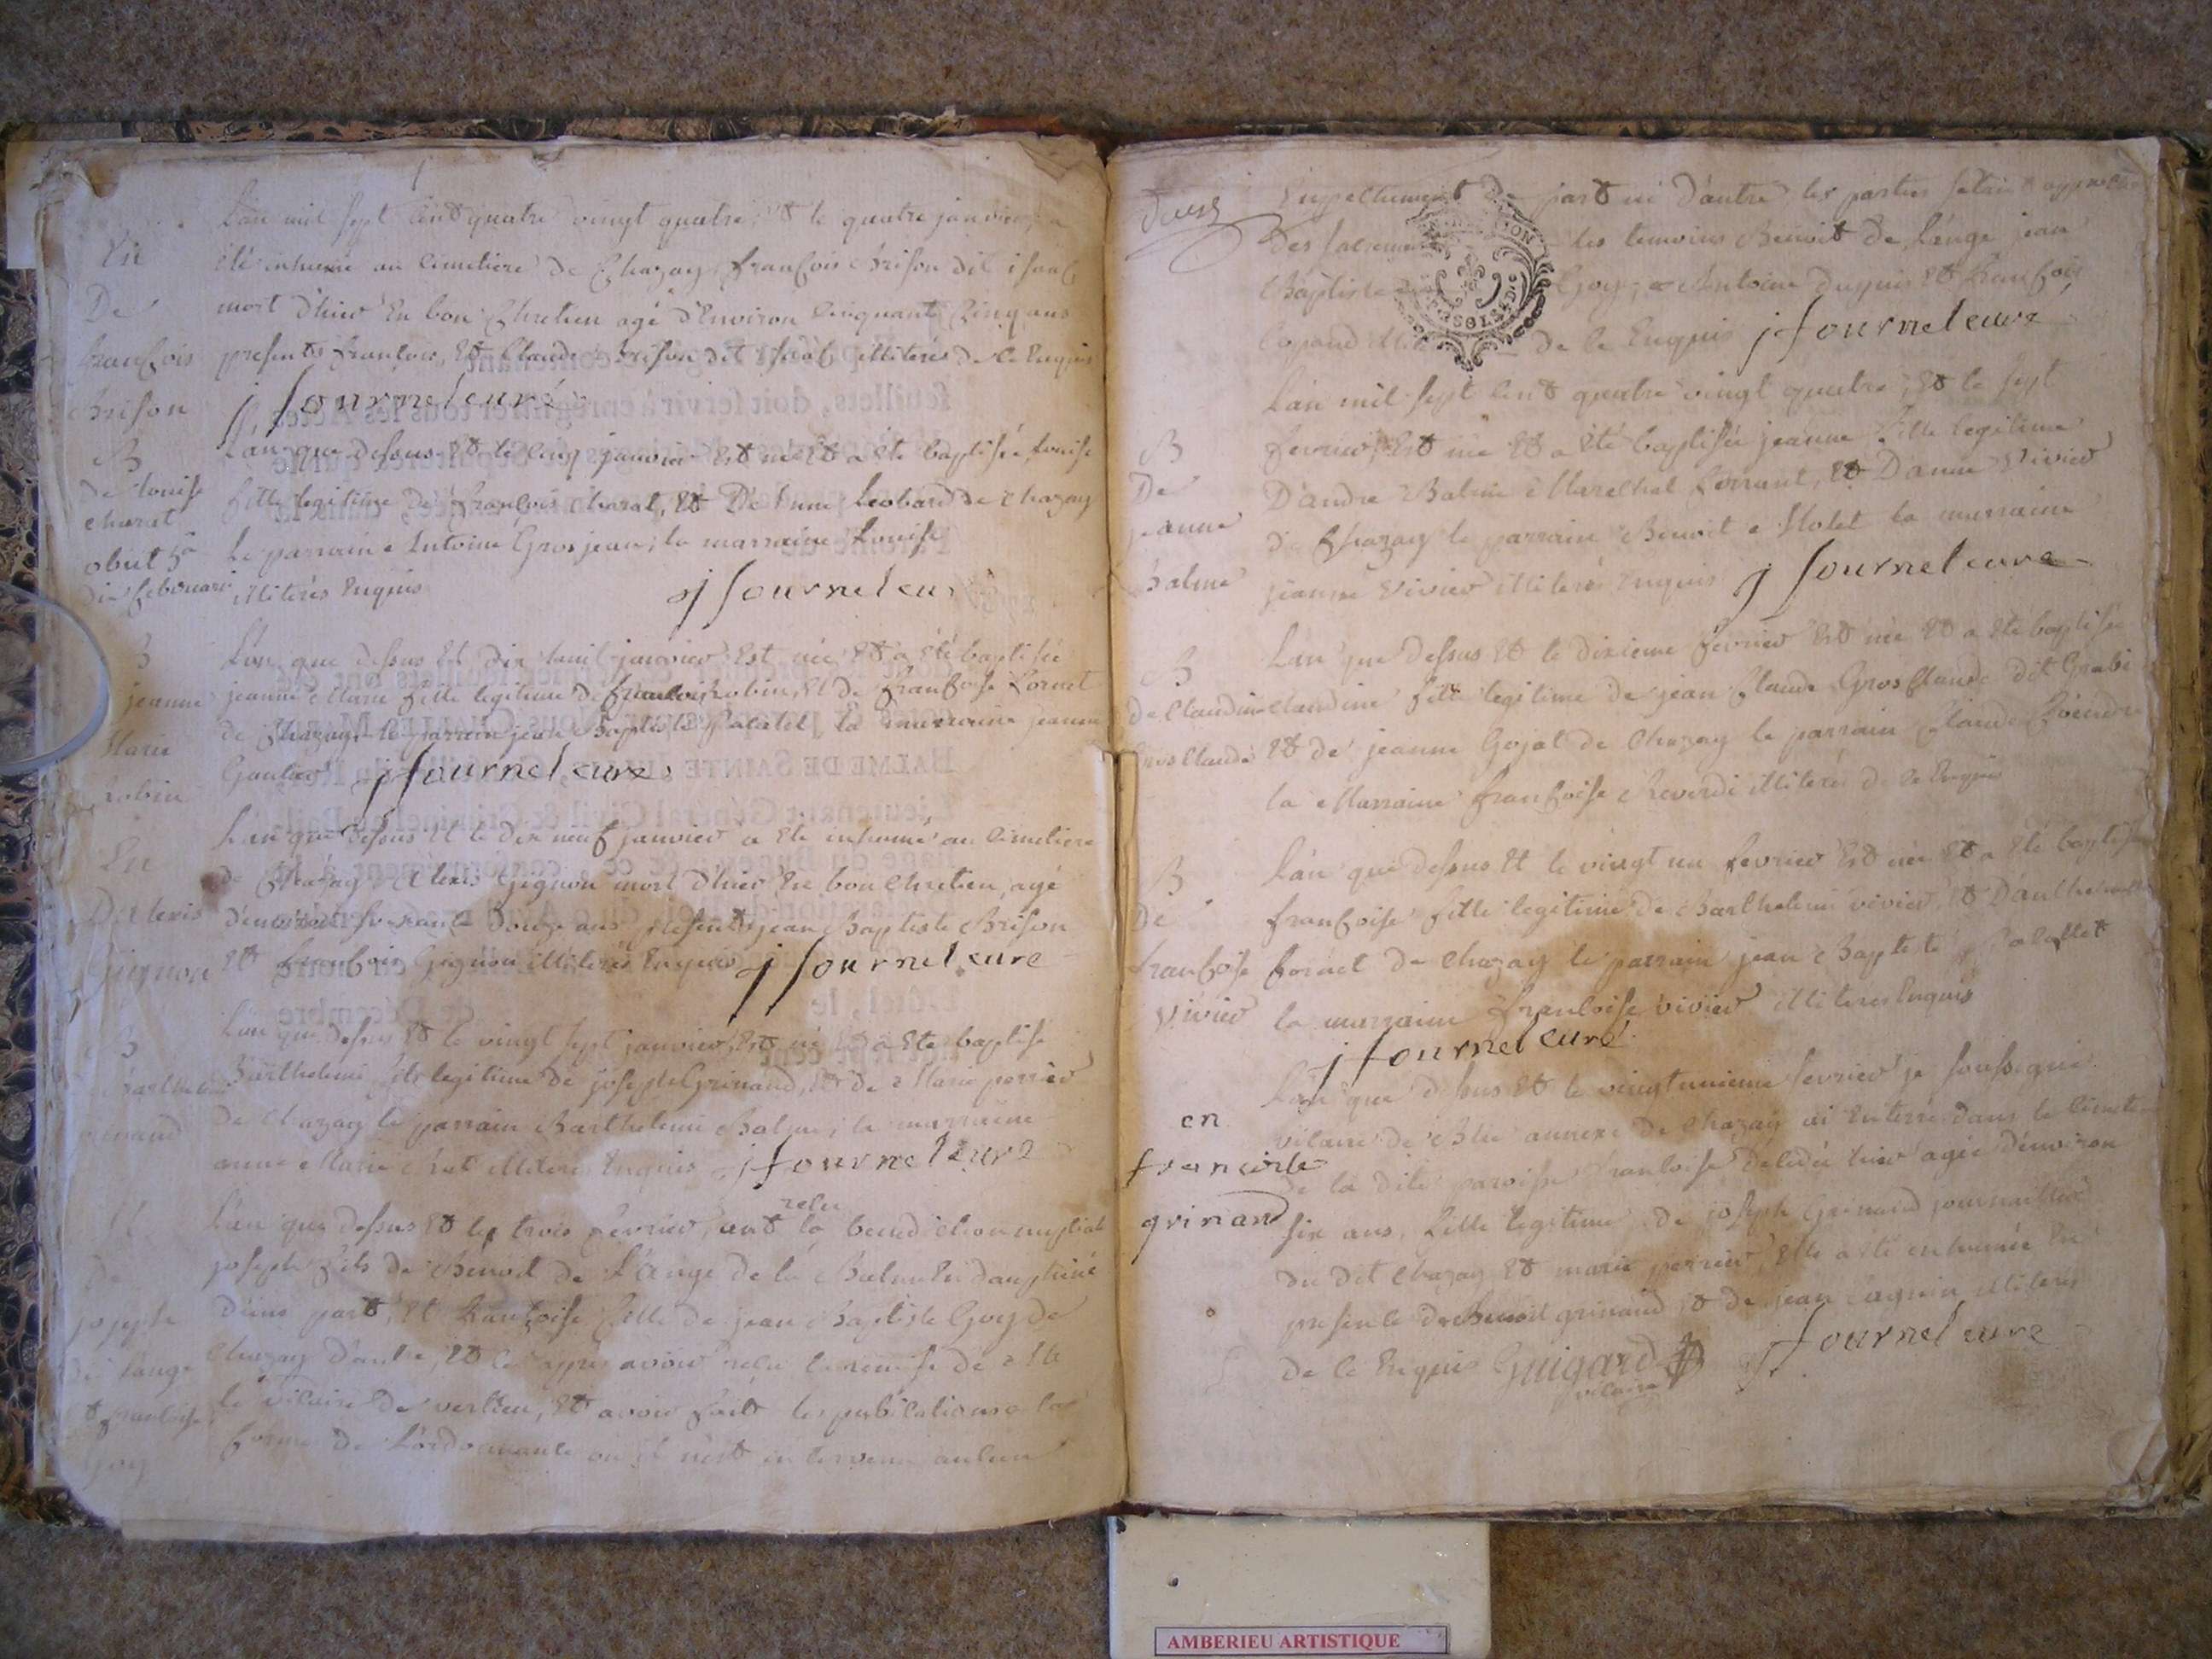 L'an mil sept cent quatre vingt quatre, et le quatre janvier, a
été inhumé au cimetiere de Chazay françois Brison dit isaac
mort d'hier en bon Chretien agé d'Environ cinquante cinq ans
presents françois, et Claude Brison dit isaac illiterés de ce enquis
j fournel curé
En
De
françois
Brison
L'an que dessus et le cinq janvier est née et a été baptisée Louise
fille legitime de françois charat, et De anne Leobard de Chazay
Le parrain Antoine Grosjean, la marraine Louise
illiterés enquis j fournel cur
B
de Louise
charat
obiit 5a
die februari
L'an que dessus et dix huit janvier est née et a été baptisée
jeanne Marie fille legitime de françois robin, et de françoise Cornet
de Chazay le parrain jean Baptiste Palatet la marraine jeanne
Gautier j fournel curé
B
jeanne
Marie
robin
L'an que dessus et le dix neuf janvier a été inhumé au cimetiere
de Chazay Alexis Guignon mort d'hier en bon chretien, agé
d'environ soixante douze ans presents jean Baptiste Brison
et françois Gignon illiterés enquis j fournel curé
En
D'alexis
Guignon
L'an que dessus et le vingt sept janvier, est né et a été baptisé
Barthelemi fils legitime de joseph Grinand, et de Marie perrier
de Chazay le parrain Barthelemi Balme, la marraine
anne Marie illiterés enquis j fournel curé
B
grinand
L'an que dessus et le trois fevrier, ont reçu la benediction nuptiale
joseph fils de Benoit de L'ange de la Balme en dauphiné
d'une part, et françoise fille de jean Baptiste Goy de
Chazay d'autre, et ce apprès avoir reçu la remise de Mr
le vicaire de vertrieu, et avoir fait les publications a la
forme de L'ordonnance ou il n'est intervenu aucun
M
De
joseph
De Lange
et françoise
Goy
deux
Empechement de part ni d'autre les parties s'etant approchés
des sacrements les temoins Benoit de L'ange jean
Baptiste Goy, Antoine dupuis et françois
de ce enquis j fournel curé
L'an mil sept cent quatre vingt quatre, et le sept
fevrier, est née et a été baptisée jeanne fille legitime
D'andre Balme Marechal ferrant, et D'anne Vivier
de Chazay le parrain Benoit Molet la marraine
jeanne Vivier illiterés enquis j fournel curé
B
De
jeanne
Balme
L'an que dessus et le dixieme fevrier est née et a été baptisée
claudine fille legitime de jean Claude Gros Claude dit
et de jeanne Gojat de Chazay le parrain Claude
la Marraine françoise Reverdi illiterés de ce enquis
B
de Claudine
Gros Claude
L'an que dessus et le vingt un fevrier est née et a été baptisée
françoise fille legitime de Barthelemi vivier, et D'anthelmette
Cornet de Chazay le parrain jean Baptiste Palattet
la marraine françoise vivier illiterés enquis
j fournel curé
B
De
françoise
Vivier
L'an que dessus et le vingtunieme fevrier je soussigné
vicaire de Blie annexe de Chazay ai enterré dans le cimetiere
de la dite paroisse françoise decedée hier agée d'environ
six ans, fille legitime de joseph Grinand journaillier
du dit Chazay et marie perrier, elle a été enhumée en
presence de Benoit grinand, et de jean illiterés
de ce enquis Guigard vicaire j fournel curé
en
francoise
grinand
AMBERIEU ARTISTIQUE